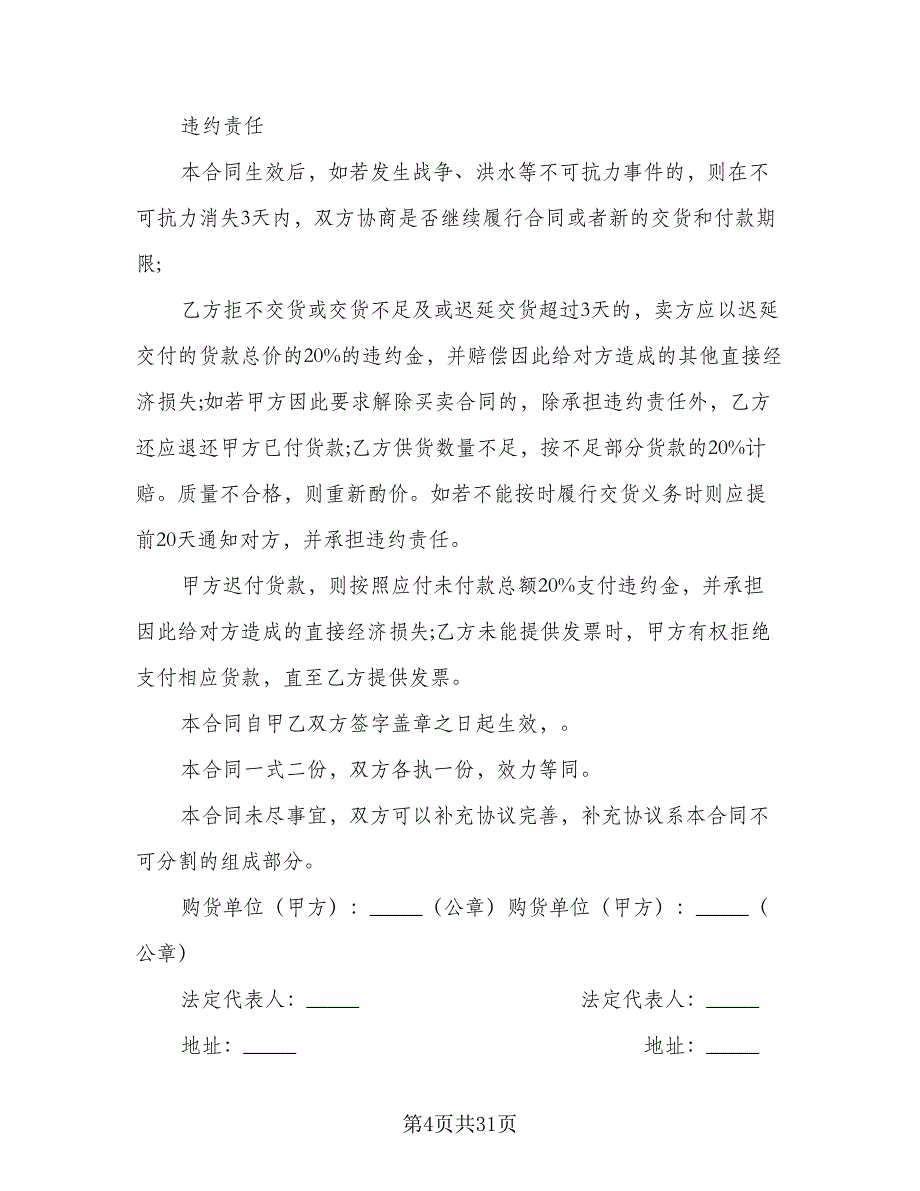 违约责任
本合同生效后，如若发生战争、洪水等不可抗力事件的，则在不
可抗力消失3天内，双方协商是否继续履行合同或者新的交货和付款期
限;
乙方拒不交货或交货不足及或迟延交货超过3天的，卖方应以迟延
交付的货款总价的20%的违约金，并赔偿因此给对方造成的其他直接经
济损失;如若甲方因此要求解除买卖合同的，除承担违约责任外，乙方
还应退还甲方已付货款;乙方供货数量不足，按不足部分货款的20%计
赔。质量不合格，则重新酌价。如若不能按时履行交货义务时则应提
前20天通知对方，并承担违约责任。
甲方迟付货款，则按照应付未付款总额20%支付违约金，并承担
因此给对方造成的直接经济损失;乙方未能提供发票时，甲方有权拒绝
支付相应货款，直至乙方提供发票。
本合同自甲乙双方签字盖章之日起生效，。
本合同一式二份，双方各执一份，效力等同。
本合同未尽事宜，双方可以补充协议完善，补充协议系本合同不
可分割的组成部分。
购货单位（甲方）：_____（公章）购货单位（甲方）：_____（
公章）
法定代表人：_____ 法定代表人：_____
地址：_____ 地址：_____
第4页共31页